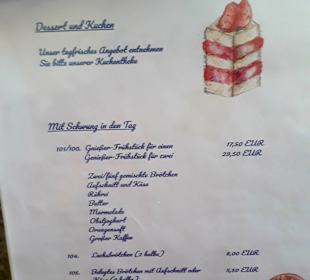 Dessert und Kuchen
Unser tagfrisches Angebot entnehmen
Sie bitte unserer Kuchentheke
Mit Schwung in den Tag
101/100. Genießer-Frühstück für einen 17,50 EUR
Genießer-Frühstück für zwei 29,50 EUR
Zwei/fünf gemischte Brötchen
Aufschnitt und Käse
Rührei
Butter
Marmelade
Obstjoghurt
Orangensaft
Großer Kaffee
104. Lachsbrötchen (2 halbe) 8,00 EUR
105. Belegtes Brötchen mit Aufschnitt oder 5,50 EUR
Käse (2 halbe)